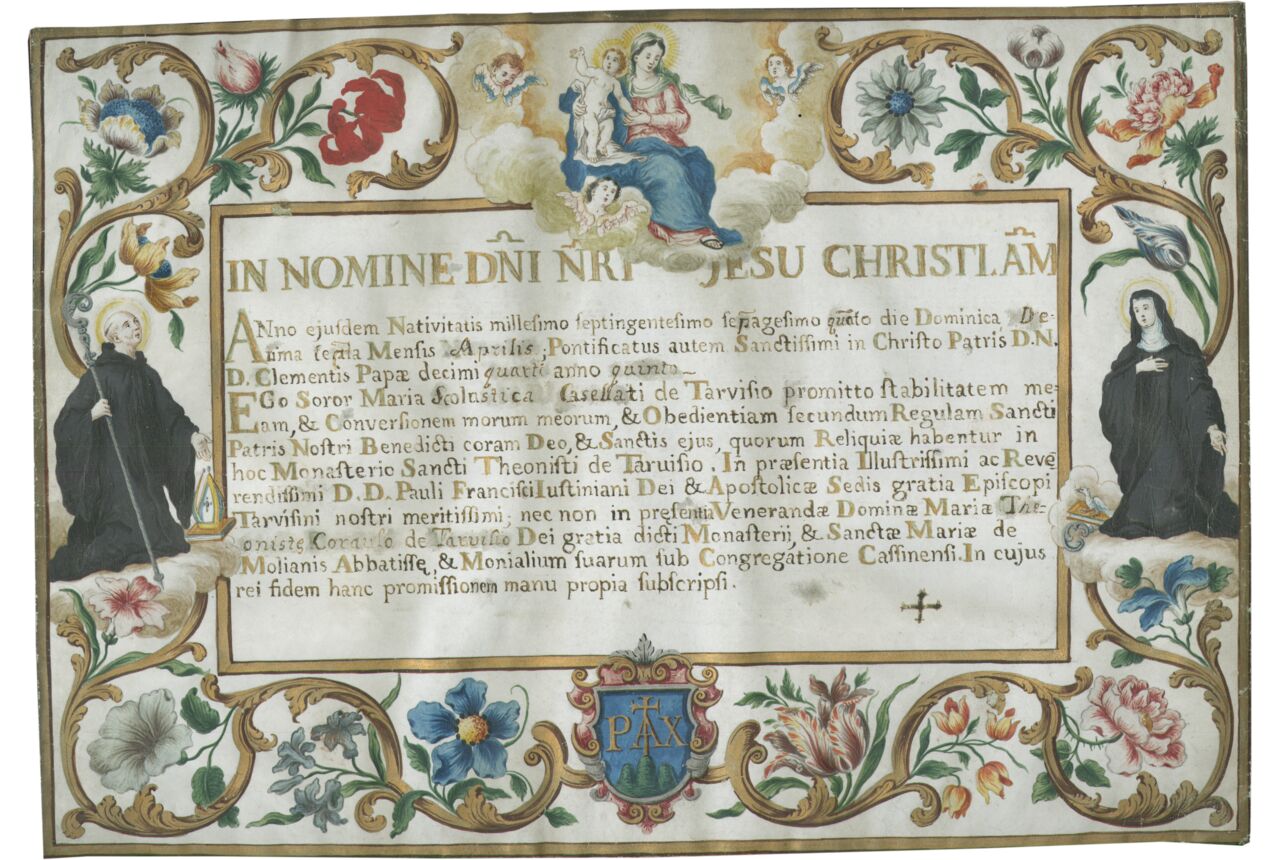 IN NOMINE DÑI ÑRI JESU CHRISTI.AM̃
ANno ejusdem Nativitatis millesimo septingentesimo septuagesimo quarto die Dominica De-
cima septima Mensis Aprilis, Pontificatus autem Sanctissimi in Christo Patris D.N.
D. Clementis Papæ decimi quarti anno quinto
EGo Soror Maria Scolastica Casellati de Tarvisio promitto stabilitatem me-
am, & Conversionem morum meorum, & Obedientiam secundum Regulam Sancti
Patris Nostri Benedicti coram Deo, & Sanctis ejus, quorum Reliquiæ habentur in
hoc Monasterio Sancti Theonisti de Taruisio. In præsentia Illustrissimi ac Reve
rendissimi D.D. Pauli Francisci Iustiniani Dei & Apostolicæ Sedis gratia Episcopi
Tarvisini nostri meritissimi, nec non in presentia Venerandæ Dominæ Mariæ The-
onistę de Tarvisio Dei gratia dicti Monasterij, & Sanctæ Mariæ de
Molianis Abbatissę, & Monialium suarum sub Congregatione Cassinensi. In cujus
rei fidem hanc promissionem manu propia subscripsi.
PAX